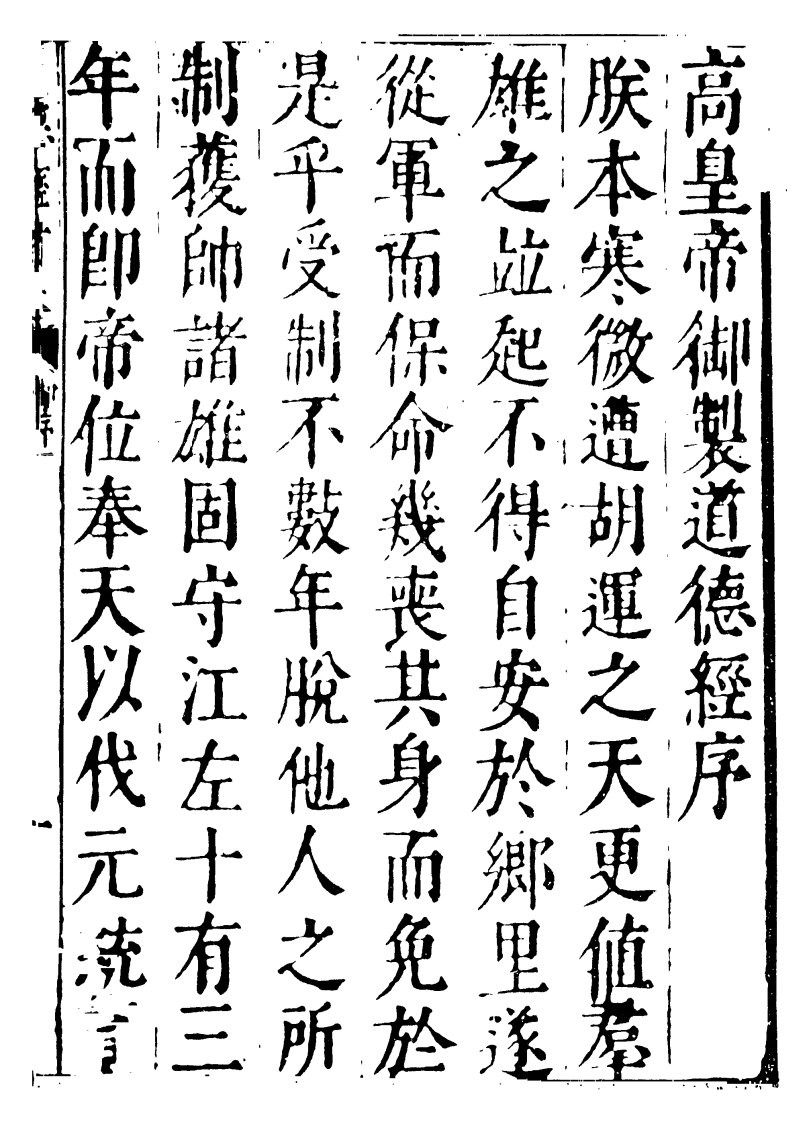 高皇帝御製道德經序
朕本寒微遭胡運之天更值羣
雄之竝起不得自安於鄉里遂
從軍而保命幾喪其身而免於
是乎受制不數年脫他人之所
制獲帥諸雄固守江左十有三
年而即帝位奉天以伐元統